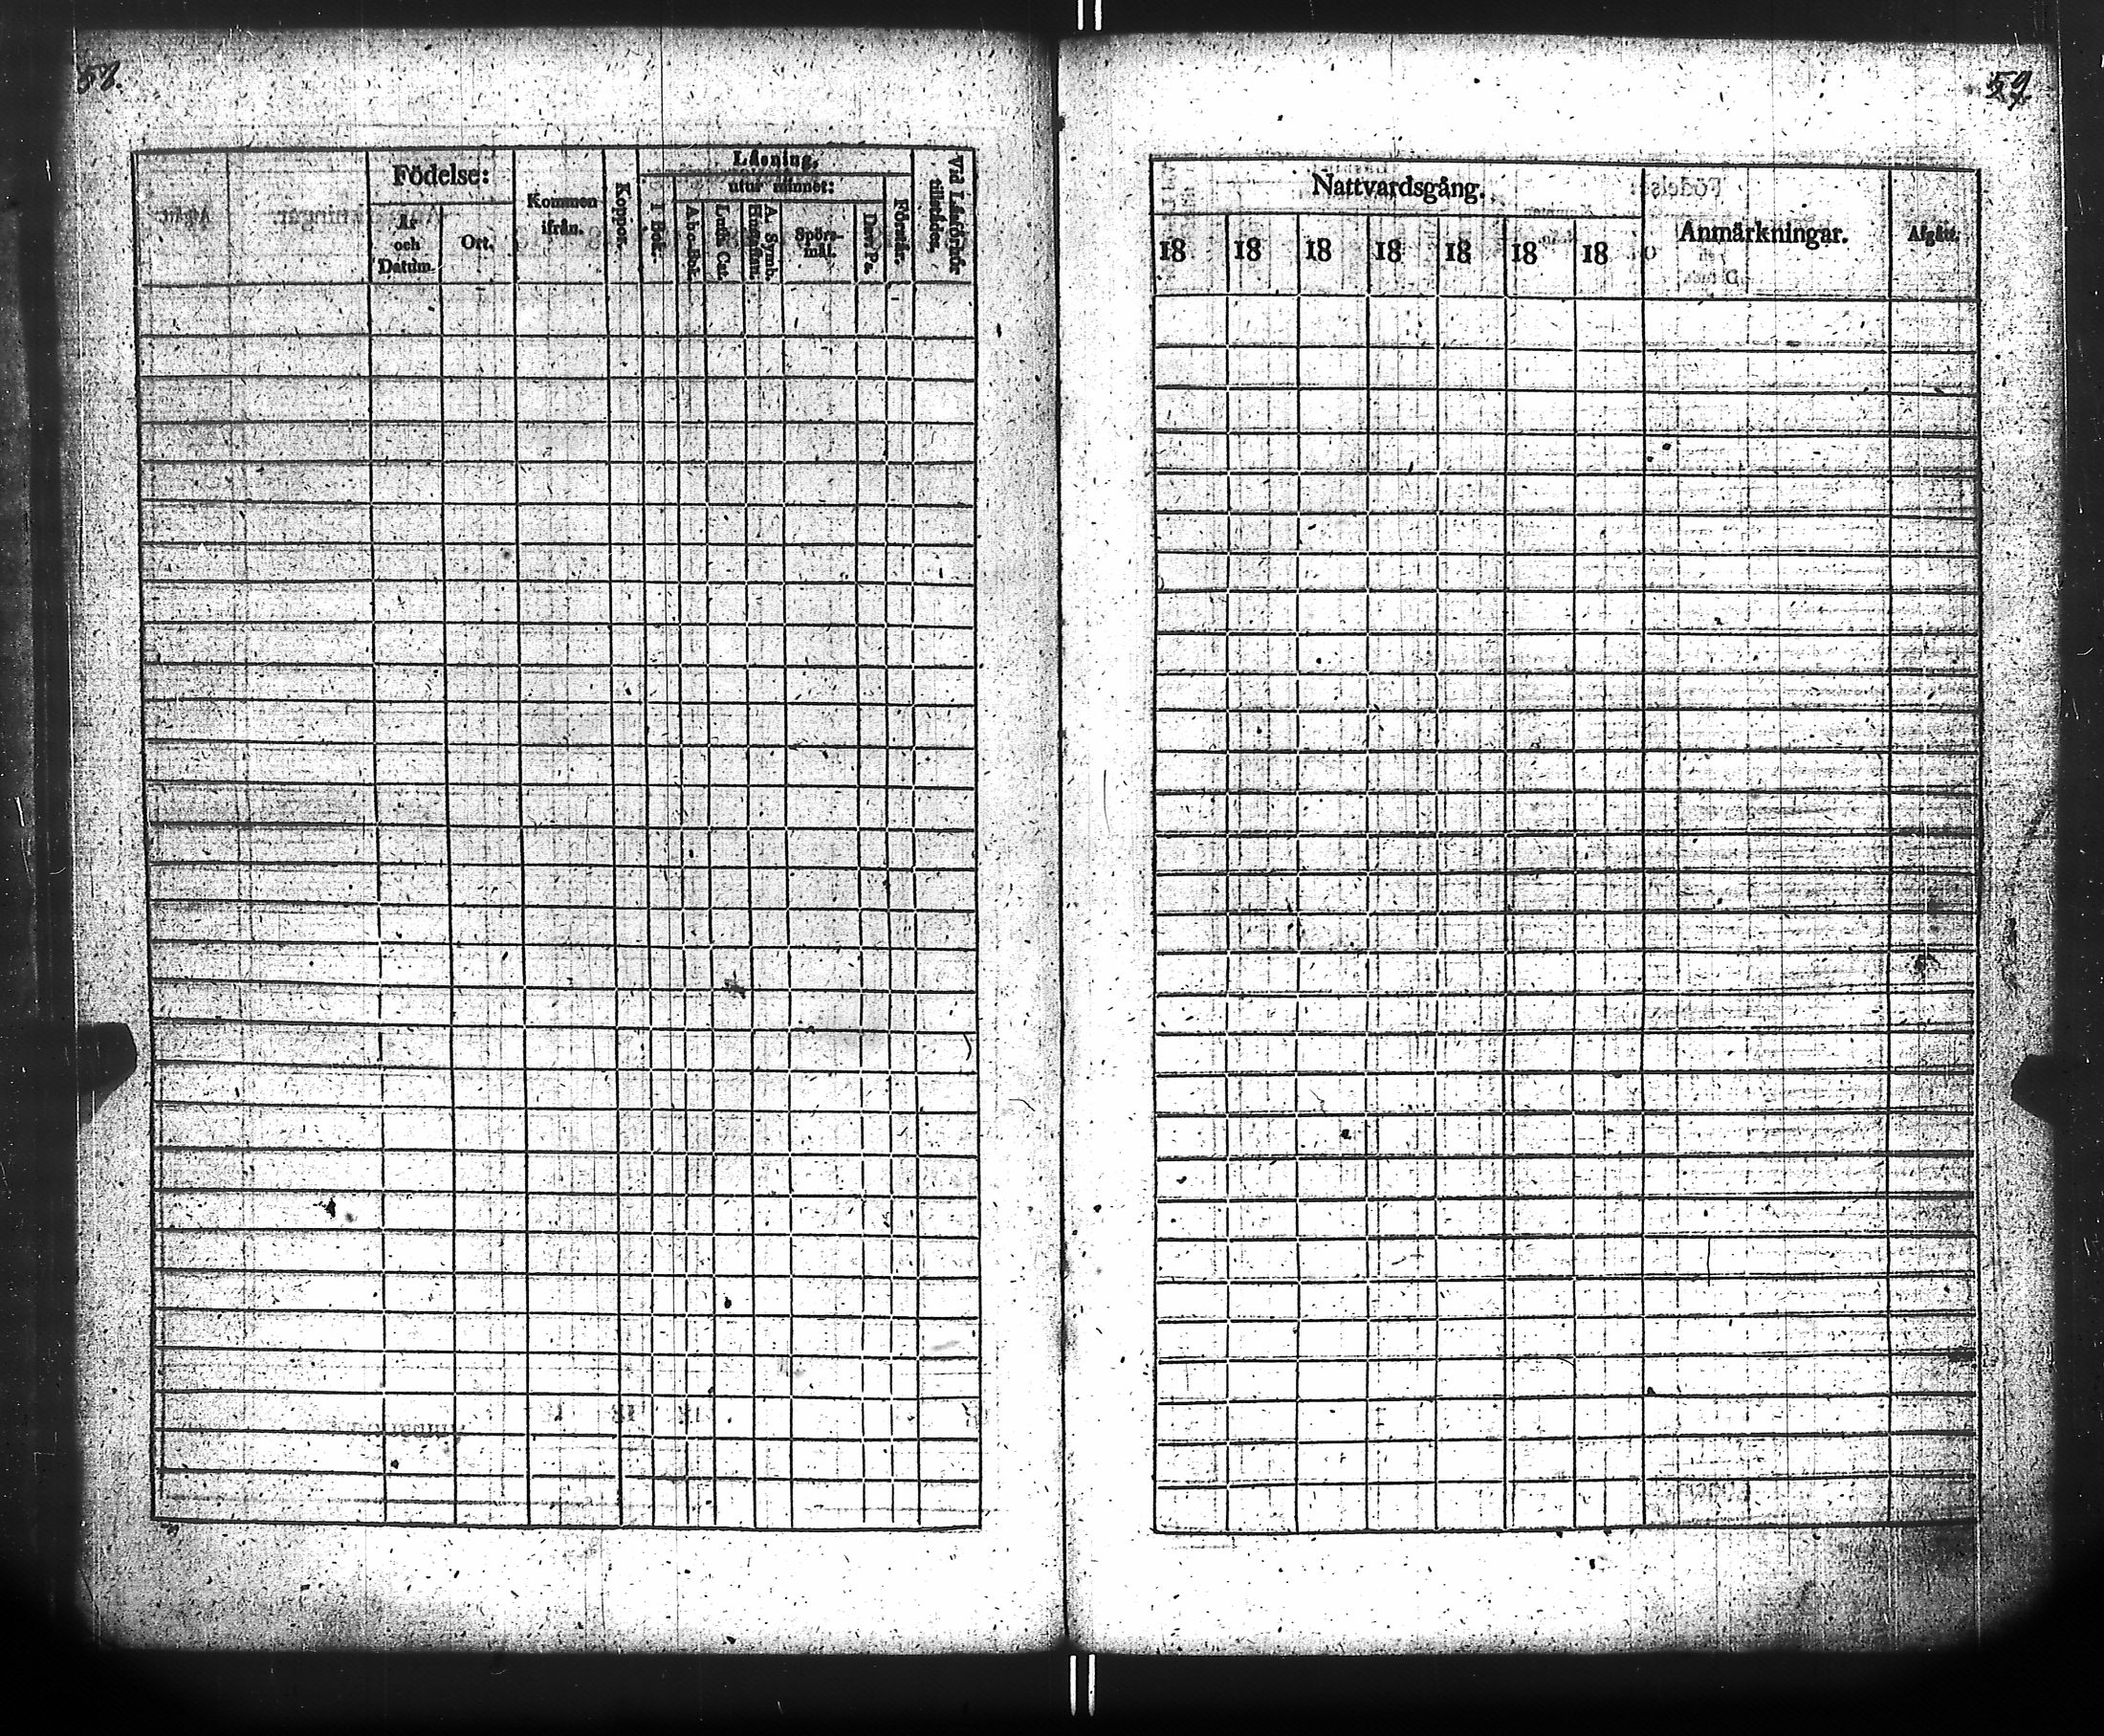 58.
Födelse:
År och Datum.
Ort.
Kommen ifrån.
Koppor.
Läsning,
I Bok.
utur minnet:
Abc-Bok
Luth. Cat.
A. Symb.
Spörs-mål.
Dav. Ps.
Förstår.
Vid Läsförhör tillstädes.
59
Nattvardsgång.
18 18 18 18 18 18 18
Anmärkningar.
Afgått.